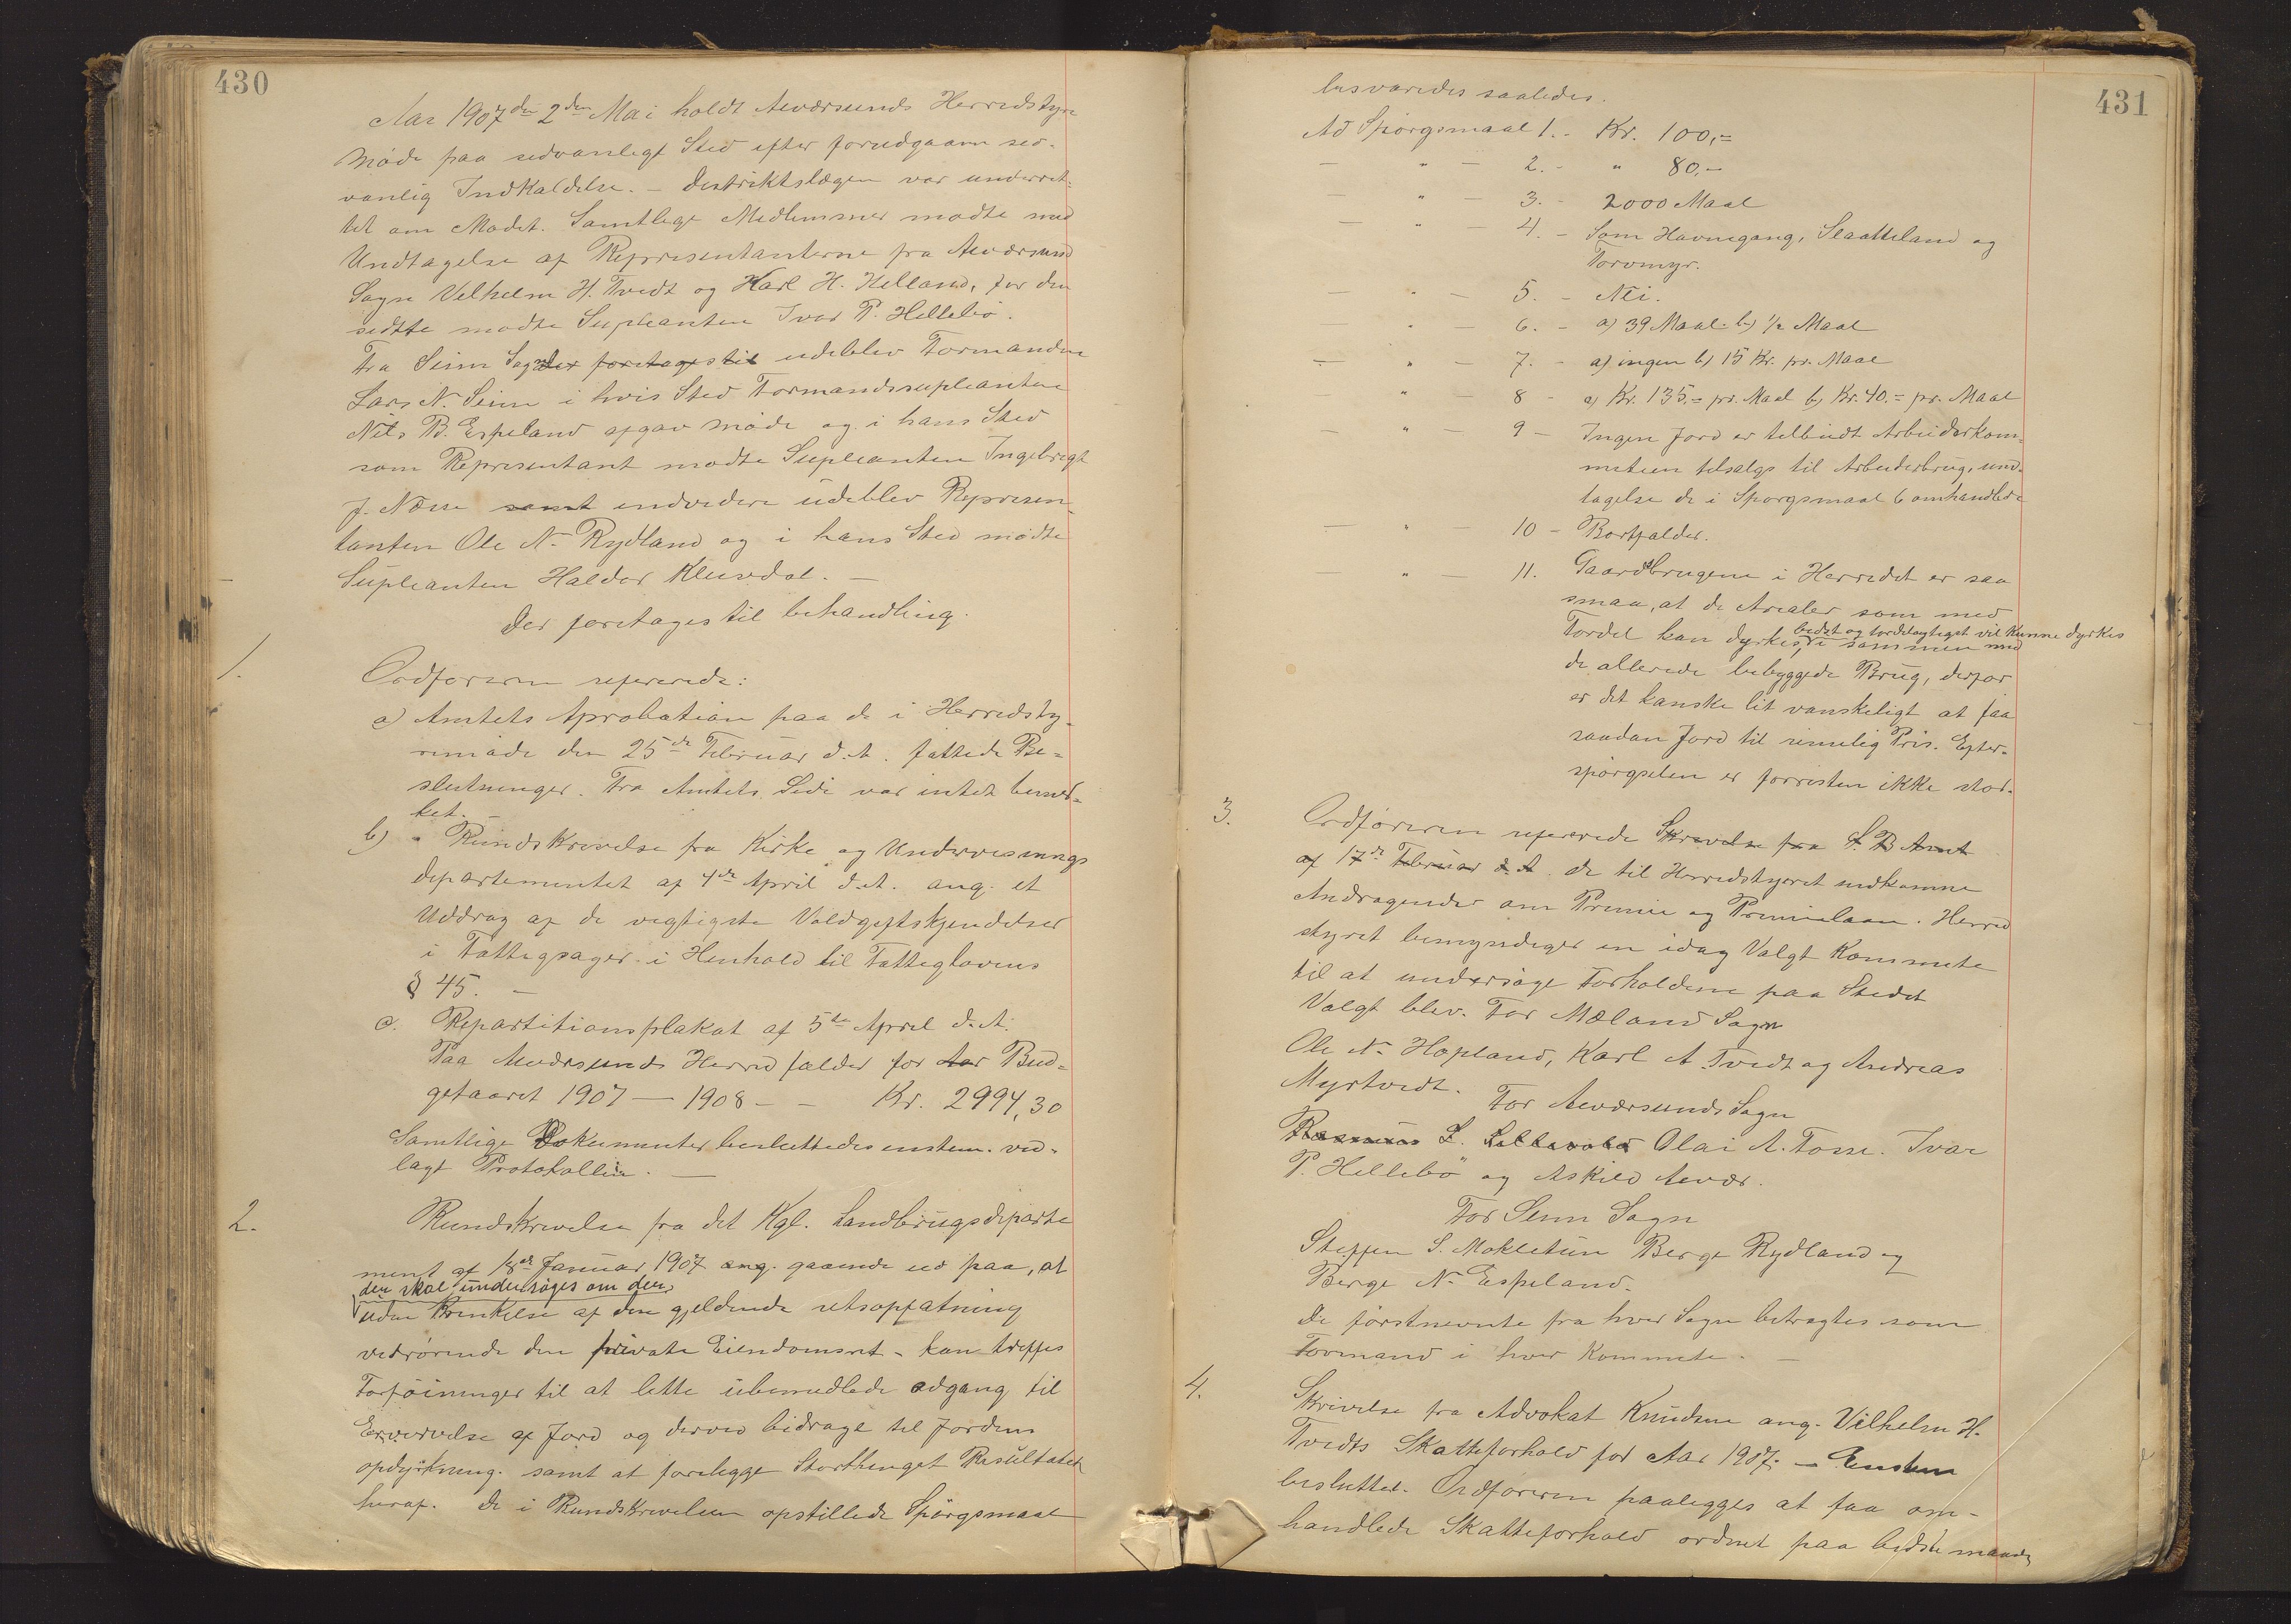 430
Aar 1907 den 2den Mai holdt Alværsunds Herredstyre
Møde paa sedvanlegt Sted efter forudgaaen sed-
vanlig Indkaldelse. - Destriktslægen var underret-
tet om Mødet. Samtlege Medlemmer mødte med
Undtagelse af Representanterne fra Alværsund
Sogn Velhelm H. Tvedt og Karl H. Helland, for den
sidste mødte Supleanten Ivar P. Hellebö.
Fra Seim Sogn der foretages til udeblev Formanden
Lars N. Seim i hvis Sted Formandssupleanten
Nils B. Espeland afgav møde og i hans Sted
som Representant mødte Supleanten Ingebregt
J. Næsse samt endvidere udeblev Represen-
tanten Ole N. Rydland og i hans Sted mødte
Supleanten Haldor Kleivdal. -
Der foretages til behandling.
1.
Ordføreren refererede:
a) Amtets Aprobation paa de i Herredsty-
remøde den 25de Februar d.A. fattede Be-
slutninger. Fra Amtets Side var intet bemær-
ket. -
b) " Rundskrivelse fra Kirke og Undervisnings
departementet af 4de April d.A. ang. et
Uddrag af de vegtigste Voldgiftskjendelser
i Fattigsager i Henhold til Fattiglovens
§ 45. -
c. Repartitionsplakat af 5te April d.A.
Paa Alværsunds Herred falder for Aar Bud-
getaaret 1907 - 1908 - - Kr. 2994,30
Samtlige Dokumenter besluttedes enstem. ved-
lagt Protokollen. -
2.
Rundskrivelse fra det Kgl. Landbrugsdeparte
ment af 18de Januar 1907 ang. gaaende ud paa, at
der skal undersøges om der
uden Krenkelse af den gjeldende retsopfatning
vedrørende den private Eiendomsret - kan treffes
Forføininger til at lette ubemedlede adgang til
Erværvelse af Jord og derved bidrage til Jordens
opdyrkning. samt at forelegge Storthinget Resultatet
heraf. De i Rundskrivelsen opstillede Spørgsmaal
431
besvaredes saaledes.
Ad Spørgsmaal 1. - Kr. 100,=
- " - 2. - " 80,-
- " - 3. - 2000 Maal
- " - 4. - Som Havnegang, Slaatteland og
Torvmyr.
- " - 5. - Nei.
- " - 6. - a) 39 Maal - b) 1/2 Maal
- " - 7. - a) ingen b) 15 Kr. pr. Maal
- " - 8 - a) Kr. 135,= pr. Maal b) Kr. 40.= pr. Maal
- " - 9 - Ingen Jord er tilbudt Arbeiderkom-
meteen tilsalgs til Arbeiderbrug, und-
tagelse de i Spørgsmaal 6 omhandlede
- " - 10 - Bortfalder.
- " - 11. Gaardsbrugene i Herredet er saa
smaa, at de Arealer som med
bedst og fordelagtigst vil kunne dyrkes
Fordel kan dyrkes, er sammen med
de allerede bebyggede Brug, derfor
er det kanske lit vanskeligt at faa
saadan Jord til rimelig Pris. Efter-
spørgselen er forresten ikke stor.
3.
Ordføreren refererede Skrivelse fra S. B Amt
af 17de Februar d.A. de til Herredstyret indkomne
Andragender om Premie og Premielaan. Herred
styret bemyndiger en idag Valgt Kommete
til at undersøge Forholdene paa Stedet
Valgt blev. For Mæland Sogn
Ole N. Hopland, Karl A Tvedt og Andreas
Myrtvedt. For Alværsunds Sogn
Rasmus L. Lillevold Olai A. Fosse. Ivar
P. Hellebö og Askild Alvær.
For Seim Sogn
Steffen S. Mokletun Berge Rydland og
Berge N. Espeland.
De førstnevnte fra hver Sogn betragtes som
Formand i hver Kommete. -
4.
Skrivelse fra Advokat Knudsen ang. Vilhelm H.
Tvedts Skatteforhold for Aar 1907. - Enstem
besluttet. Ordføreren paalegges at faa om-
handlede Skatteforhold ordnet paa bedste maade